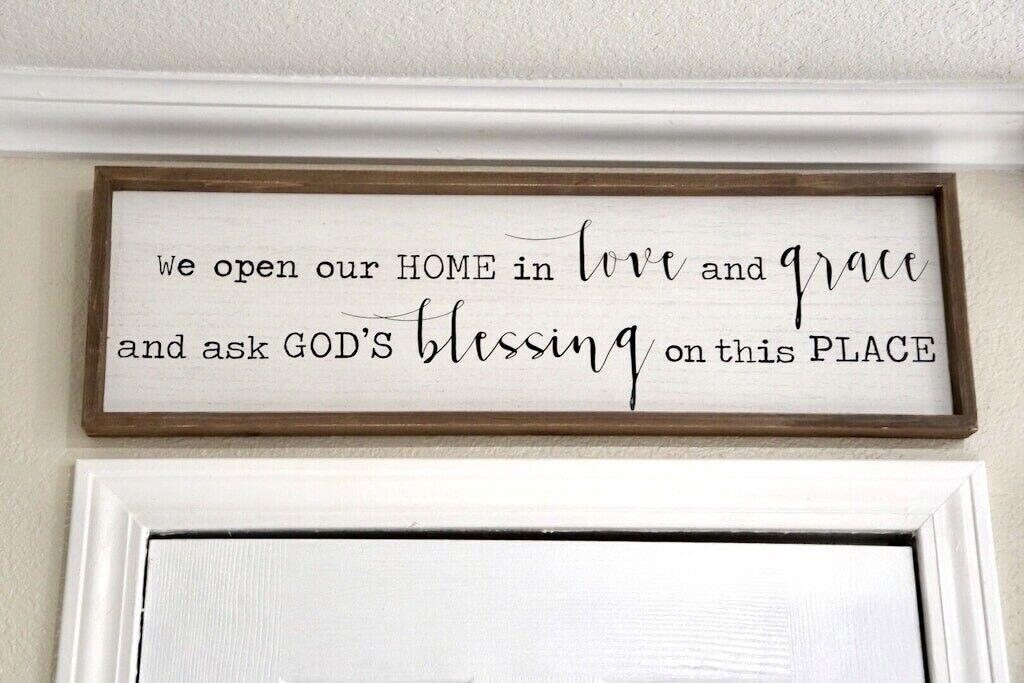 We open our HOME in love and grace
and ask GOD'S blessing on this PLACE